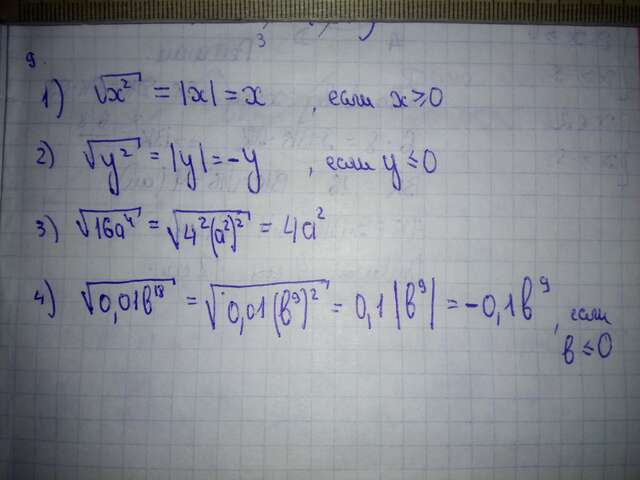 9.
1) √x² = |x| = x , если x ≥ 0
2) √y² = |y| = -y , если y ≤ 0
3) √16a⁴ = √4²(a²)² = 4a²
4) √0,01b¹⁸ = √0,01(b⁹)² = 0,1|b⁹| = -0,1b⁹ , если
b ≤ 0